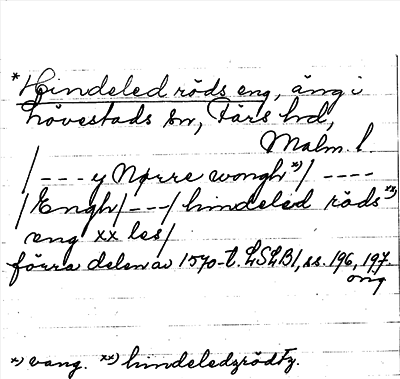 * Hindeled röds eng, äng i
Lövestads sn, Färs hd,
Malm. l.
/ - - - y Nørre wongh *)/ - - - -
/Engh/ - - -/ hindeled röds **)
eng xx les/
förra delen av 1570-t. LSLB1, ss. 196, 197.
orig
*) vang. **) hindeledzrödtz.